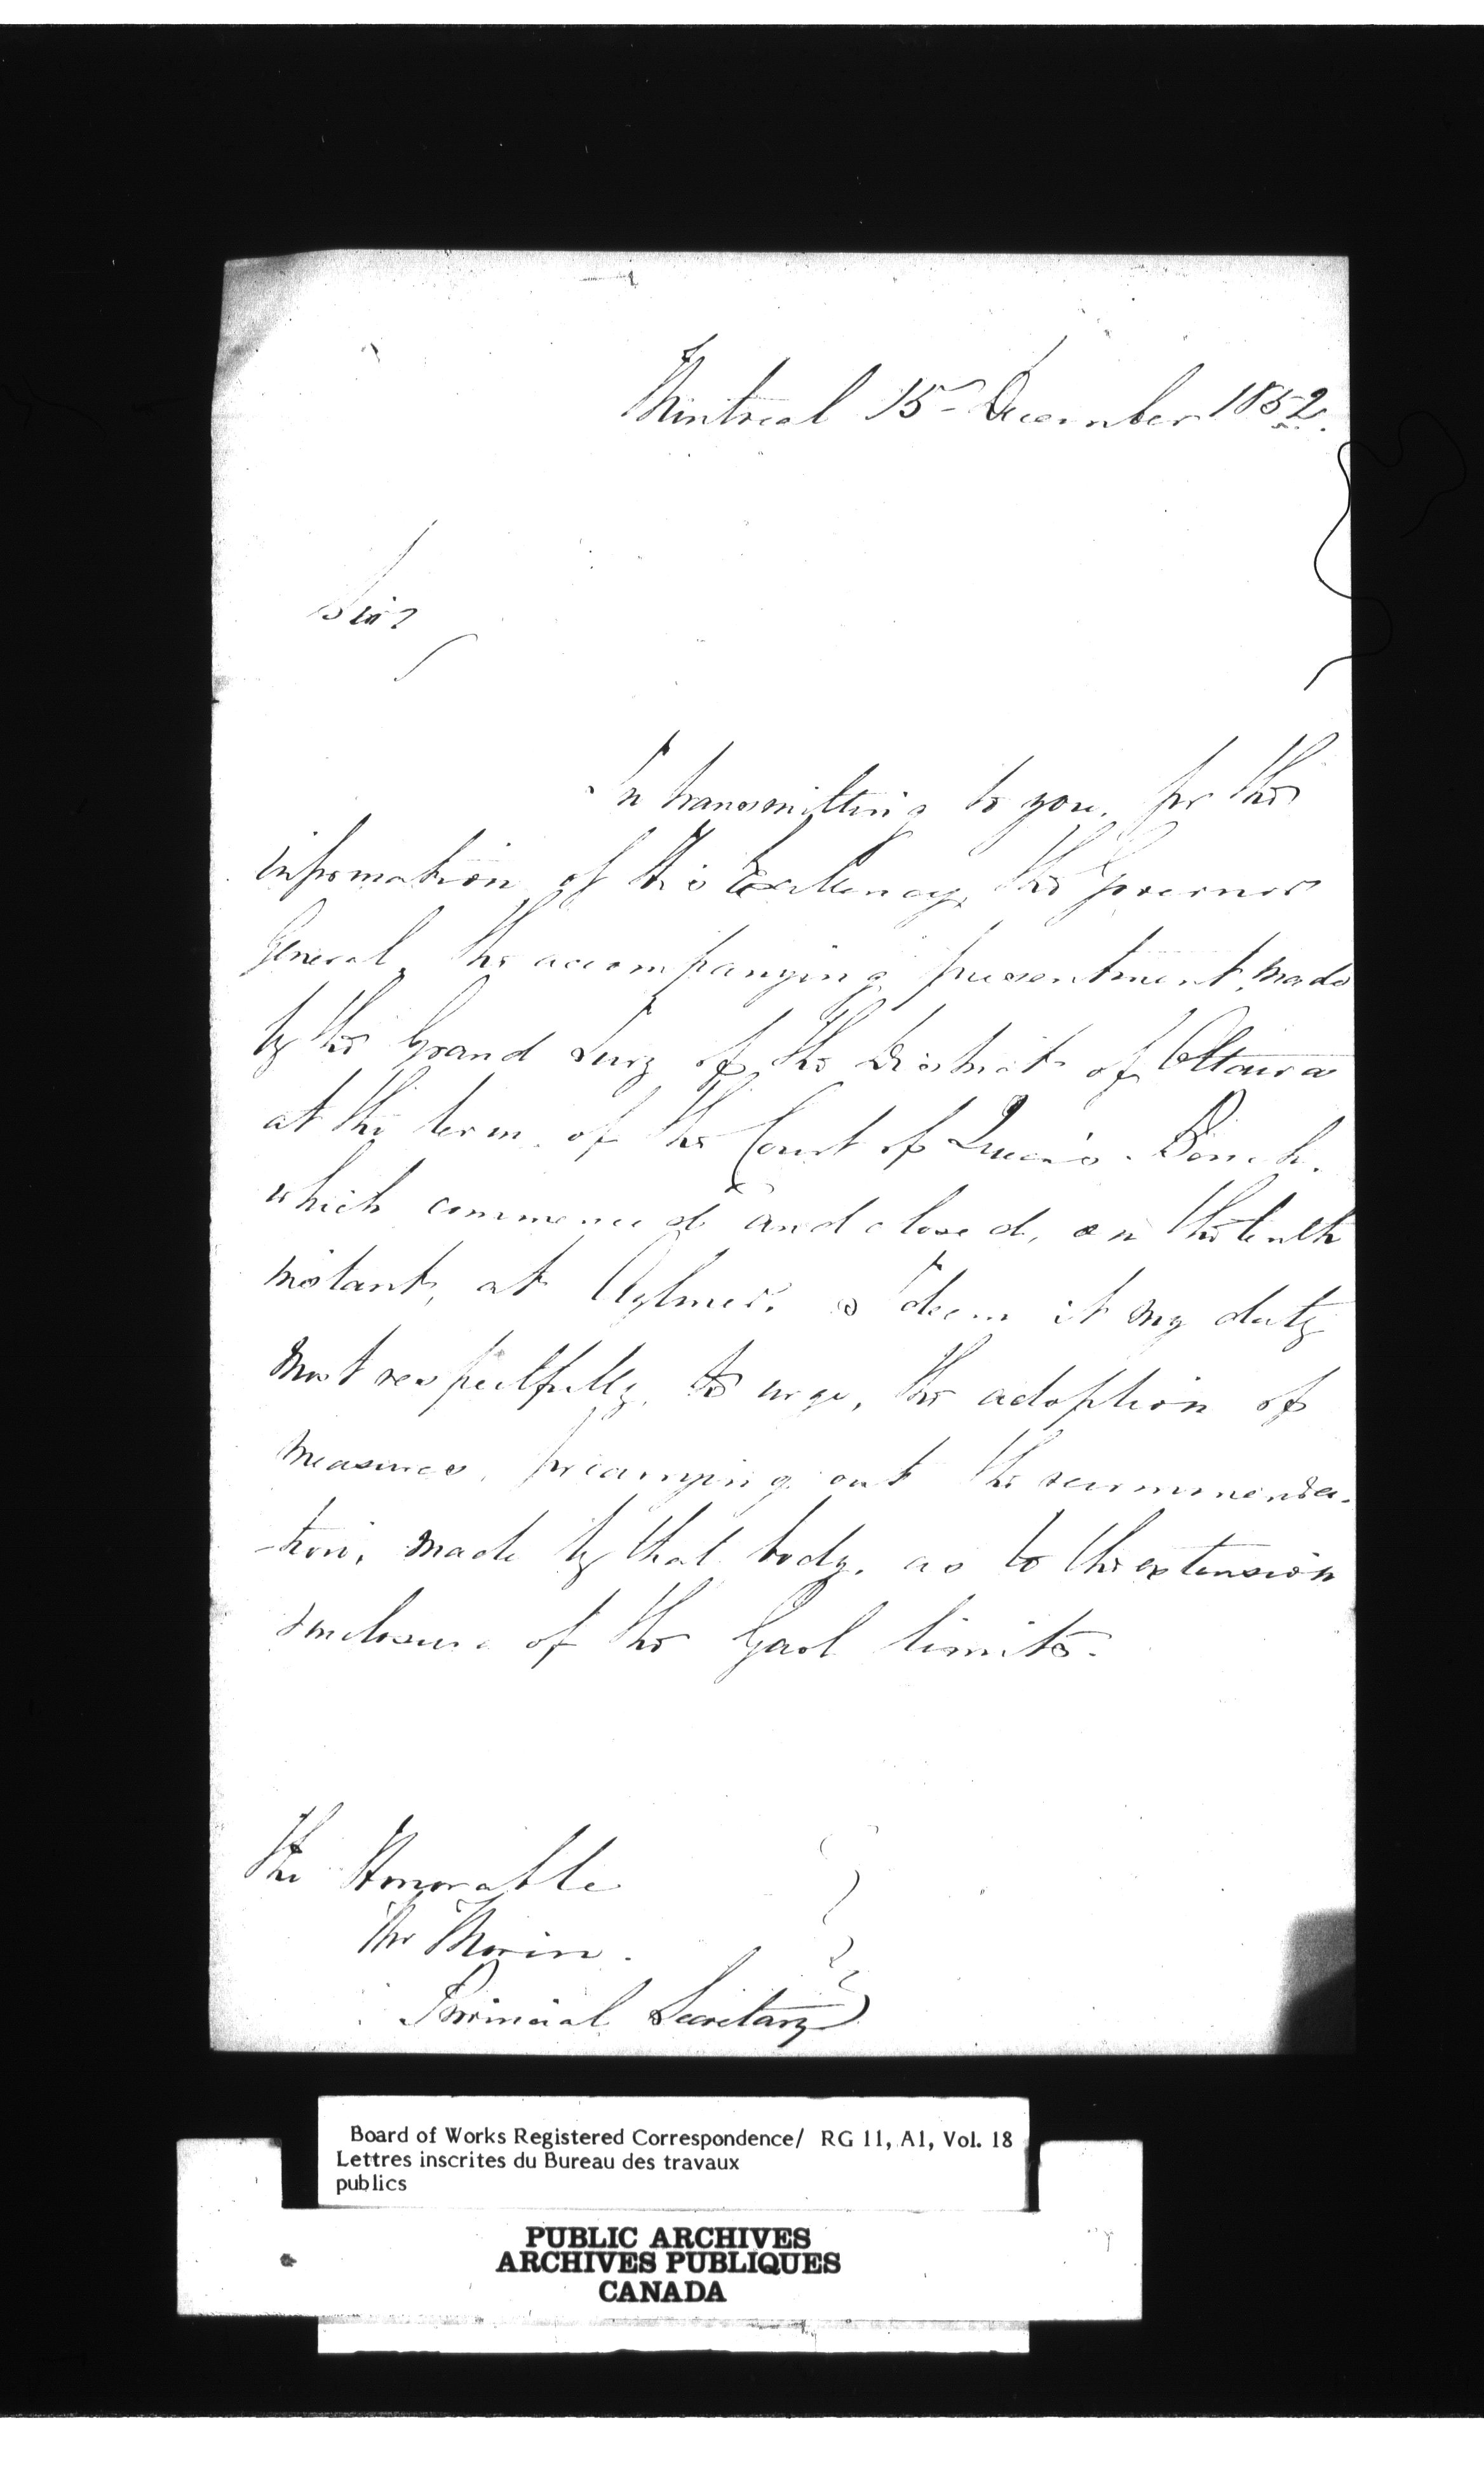 Montreal 15 - December 1852.
Sir,
In transmitting to you, for the
information of His Excellency, the Governor
General, the accompanying presentment, made
by the Grand Jury of the District of Ottawa
at the term of the Court of Queen's Bench,
which commenced and closed, on the tenth
instant, at Aylmer. I deem it my duty
most respectfully, to urge, the adoption of
measures, for carrying out the recommenda-
-tion, made by that body, as to the extension
enclosure of the Gaol limits.
The Honorable
Mr Morin.
Provincial Secretary
Board of Works Registered Correspondence/ RG 11, A1, Vol. 18
Lettres inscrites du Bureau des travaux
publics
PUBLIC ARCHIVES
ARCHIVES PUBLIQUES
CANADA